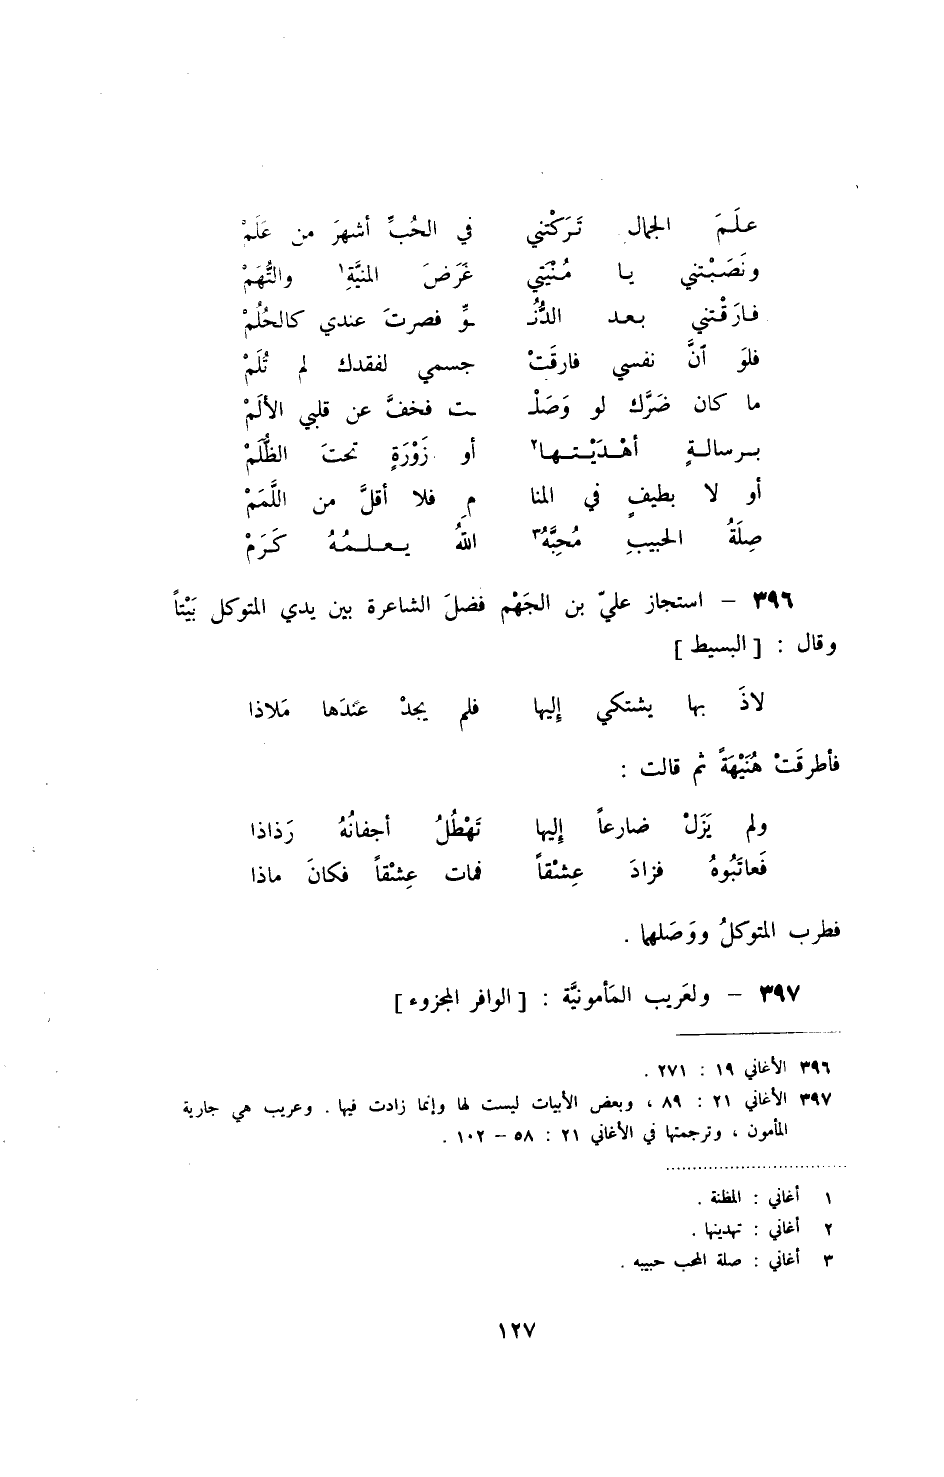 علَمَ الجمال تَركْتني في الحُبِّ أشهرَ من عَلَمْ
ونَصَبْتني يا مُنْيَتي غَرَضَ المنيَّةِ١ والتُّهَمْ
فارَقْتني بعد الدُّنُـ ـوِّ فصرتَ عندي كالحُلُمْ
فلوَ ٱنَّ نفسي فارقَتْ جسمي لفقدك لم تُلَمْ
ما كان ضَرَّك لو وَصَلْـ ـت فخفَّ عن قلبي الألَمْ
برسالةٍ أهْدَيْتها٢ أو زَوْرَةٍ تحتَ الظُّلَمْ
أو لا بطيفٍ في المنا مِ فلا أقلَّ من اللَّمَمْ
صِلَةُ الحبيبِ مُحِبَّهُ٣ اللهُ يعلمُهُ كَرَمْ
٣٩٦ – استجاز عليّ بن الجَهْم فضلَ الشاعرة بين يدي المتوكل بَيْتاً
وقال : [ البسيط ]
لاذَ بها يشتكي إليها فلم يجدْ عنْدَها مَلاذا
فأطرقَتْ هُنَيْهَةً ثم قالت :
ولم يَزَلْ ضارعاً إليها تَهْطُلُ أجفانُهُ رَذاذا
فَعاتَبُوهُ فزادَ عِشْقاً فمات عِشْقاً فكانَ ماذا
فطرب المتوكلُ ووَصَلها .
٣٩٧ – ولعَريب المَأمونيَّة : [ الوافر المجزوء ]
٣٩٦ الأغاني ١٩ : ٢٧١ .
٣٩٧ الأغاني ٢١ : ٨٩ ، وبعض الأبيات ليست لها وإنما زادت فيها . وعريب هي جارية
المأمون ، وترجمتها في الأغاني ٢١ : ٥٨ – ١٠٢ .
١ أغاني : المظنة .
٢ أغاني : تهدينها .
٣ أغاني : صلة المحب حبيبه .
١٢٧